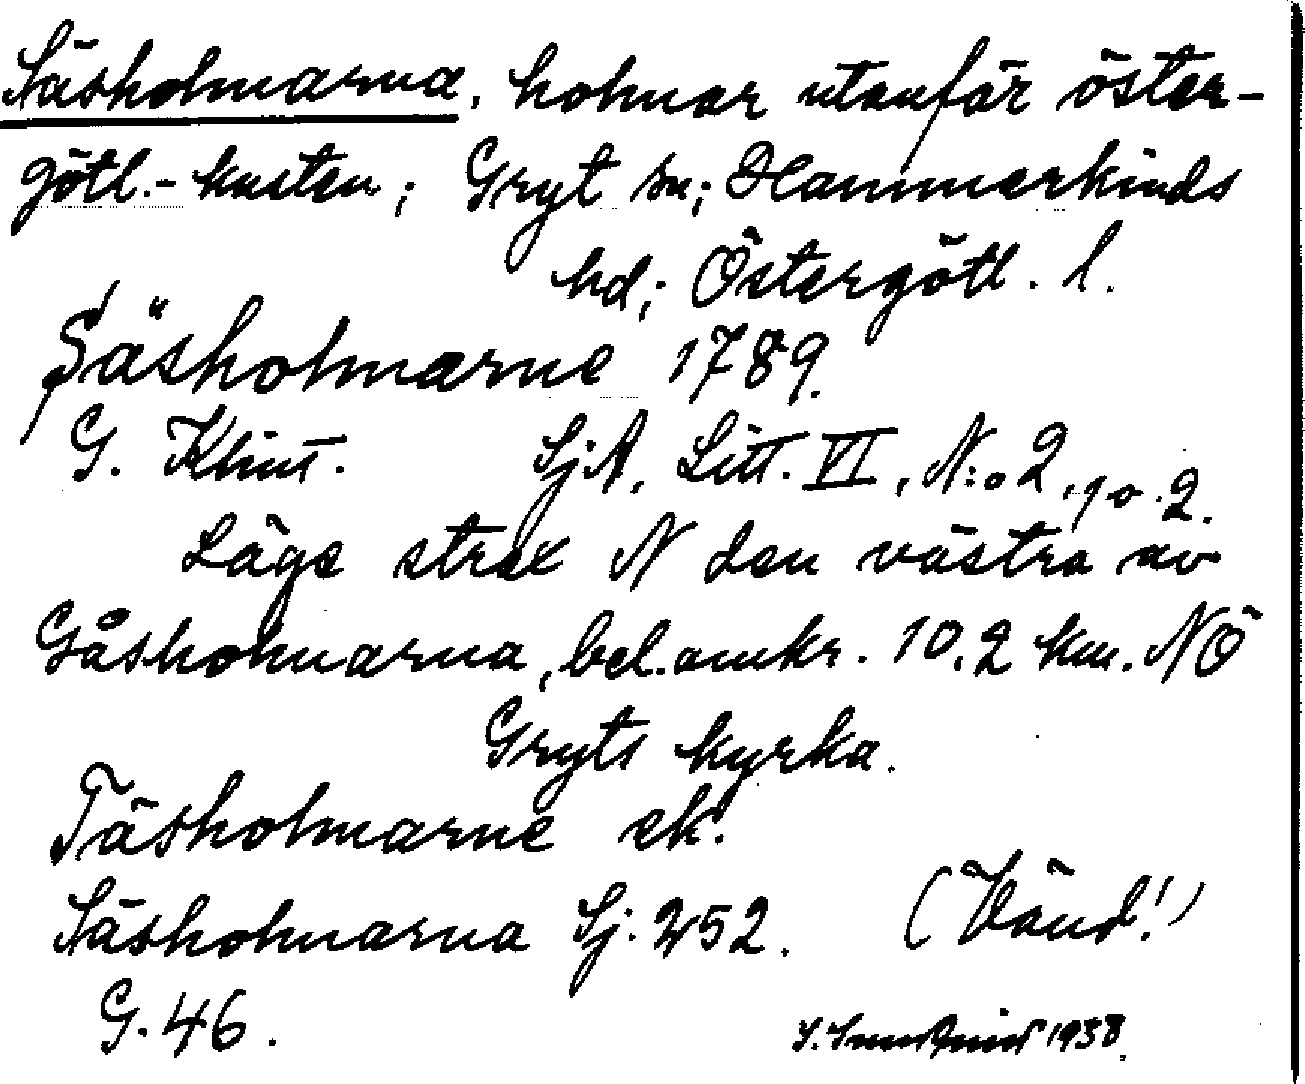 Säsholmarna, holmar utanför öster-
götl.-kusten; Gryt sn; Hammerkinds
hd; Östergötl. l.
Säsholmarne 1789.
G. Klint. SjA, Litt. VI, N:o 2, 2.
Läge strax N den västra av
Gåsholmarna, bel. omkr. 10.2 km. NÖ
Gryts kyrka.
Täsholmarne ek.
Säsholmarna Sj. 252. (Vänd!)
G. 46.
1938.